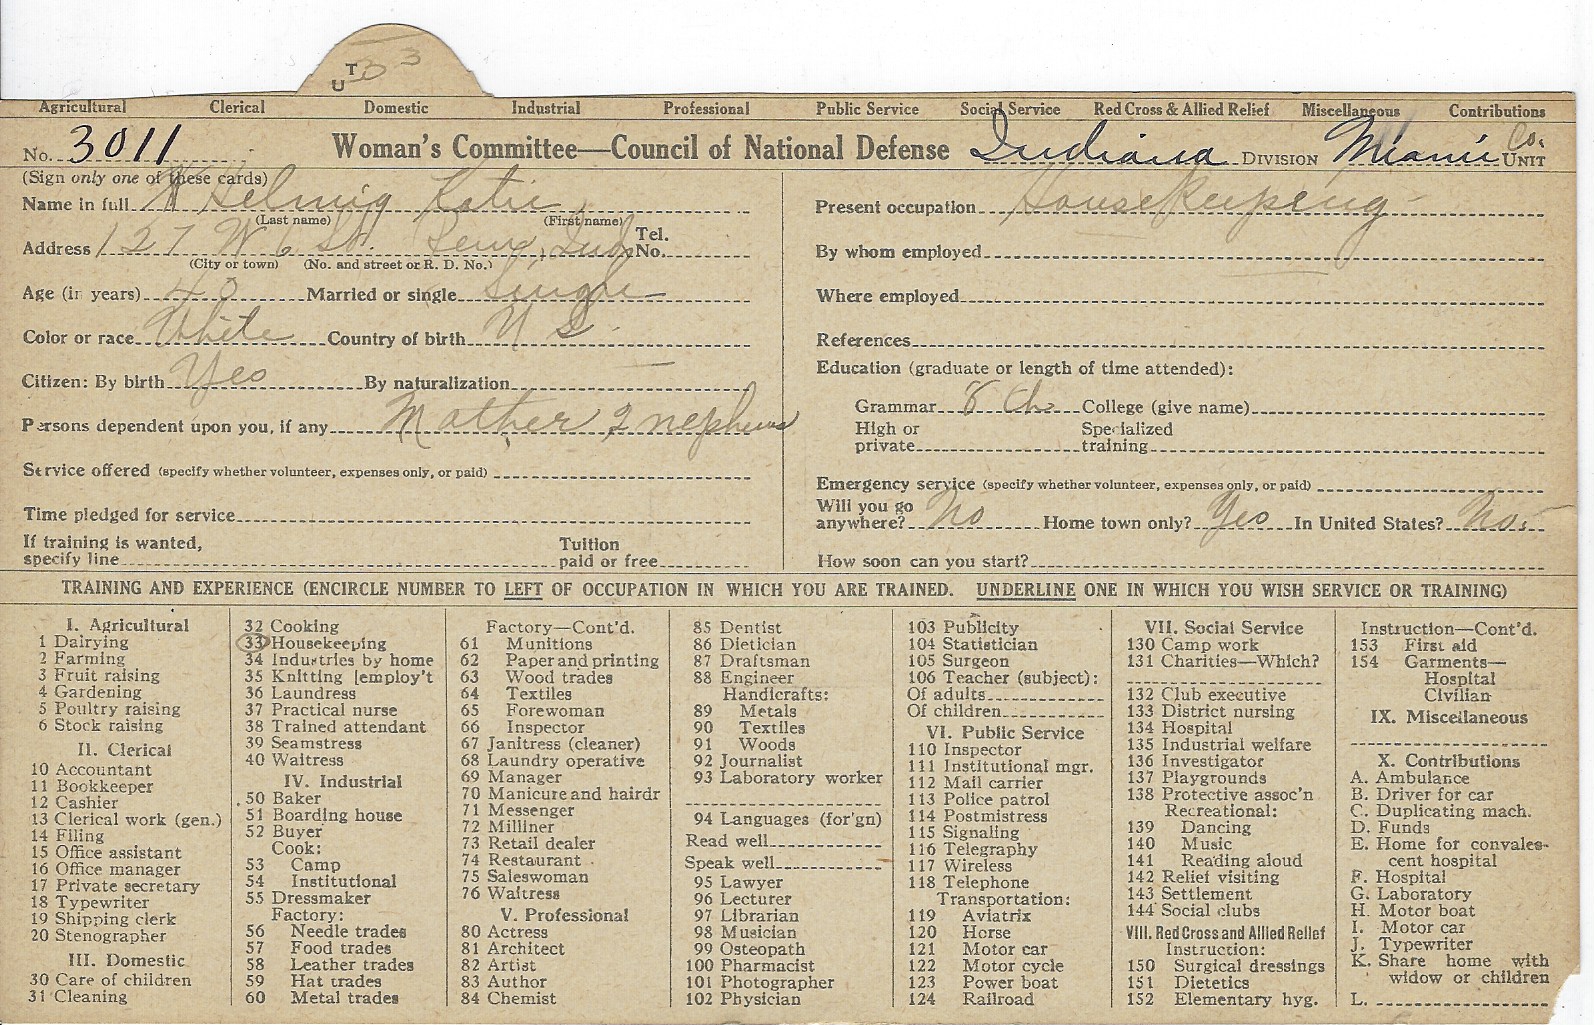 33
UT
Agricultural Clerical Domestic Industrial Professional Public Service Social Service Red Cross & Allied Relief Miscellaneous Contributions
No. 3011 Woman's Committee—Council of National Defense Indiana DIVISION Miami Co. UNIT
(Sign only one of these cards)
Name in full Helmig Katie
(Last name) (First name)
Address 127 W 6 St. Peru, Ind Tel. No.
(City or town) (No. and street or R. D. No.)
Age (in years) 40 Married or single Single
Color or race White Country of birth U S.
Citizen: By birth Yes By naturalization
Persons dependent upon you, if any Mother 2 nephews
Service offered (specify whether volunteer, expenses only, or paid)
Time pledged for service
If training is wanted, specify line Tuition paid or free
Present occupation Housekeeping
By whom employed
Where employed
References
Education (graduate or length of time attended):
Grammar 8 th College (give name)
High or private Specialized training
Emergency service (specify whether volunteer, expenses only, or paid)
Will you go anywhere? No Home town only? Yes In United States? No.
How soon can you start?
TRAINING AND EXPERIENCE (ENCIRCLE NUMBER TO LEFT OF OCCUPATION IN WHICH YOU ARE TRAINED. UNDERLINE ONE IN WHICH YOU WISH SERVICE OR TRAINING)
I. Agricultural
1 Dairying
2 Farming
3 Fruit raising
4 Gardening
5 Poultry raising
6 Stock raising
II. Clerical
10 Accountant
11 Bookkeeper
12 Cashier
13 Clerical work (gen.)
14 Filing
15 Office assistant
16 Office manager
17 Private secretary
18 Typewriter
19 Shipping clerk
20 Stenographer
III. Domestic
30 Care of children
31 Cleaning
32 Cooking
33 Housekeeping
34 Industries by home
35 Knitting [employ't
36 Laundress
37 Practical nurse
38 Trained attendant
39 Seamstress
40 Waitress
IV. Industrial
50 Baker
51 Boarding house
52 Buyer
Cook:
53 Camp
54 Institutional
55 Dressmaker
Factory:
56 Needle trades
57 Food trades
58 Leather trades
59 Hat trades
60 Metal trades
Factory—Cont'd.
61 Munitions
62 Paper and printing
63 Wood trades
64 Textiles
65 Forewoman
66 Inspector
67 Janitress (cleaner)
68 Laundry operative
69 Manager
70 Manicure and hairdr
71 Messenger
72 Milliner
73 Retail dealer
74 Restaurant
75 Saleswoman
76 Waitress
V. Professional
80 Actress
81 Architect
82 Artist
83 Author
84 Chemist
85 Dentist
86 Dietician
87 Draftsman
88 Engineer
Handicrafts:
89 Metals
90 Textiles
91 Woods
92 Journalist
93 Laboratory worker
94 Languages (for'gn)
Read well
Speak well
95 Lawyer
96 Lecturer
97 Librarian
98 Musician
99 Osteopath
100 Pharmacist
101 Photographer
102 Physician
103 Publicity
104 Statistician
105 Surgeon
106 Teacher (subject):
Of adults
Of children
VI. Public Service
110 Inspector
111 Institutional mgr.
112 Mail carrier
113 Police patrol
114 Postmistress
115 Signaling
116 Telegraphy
117 Wireless
118 Telephone
Transportation:
119 Aviatrix
120 Horse
121 Motor car
122 Motor cycle
123 Power boat
124 Railroad
VII. Social Service
130 Camp work
131 Charities—Which?
132 Club executive
133 District nursing
134 Hospital
135 Industrial welfare
136 Investigator
137 Playgrounds
138 Protective assoc'n
Recreational:
139 Dancing
140 Music
141 Reading aloud
142 Relief visiting
143 Settlement
144 Social clubs
VIII. Red Cross and Allied Relief
Instruction:
150 Surgical dressings
151 Dietetics
152 Elementary hyg.
Instruction—Cont'd.
153 First aid
154 Garments—
Hospital
Civilian
IX. Miscellaneous
X. Contributions
A. Ambulance
B. Driver for car
C. Duplicating mach.
D. Funds
E. Home for convales-
cent hospital
F. Hospital
G. Laboratory
H. Motor boat
I. Motor car
J. Typewriter
K. Share home with
widow or children
L.